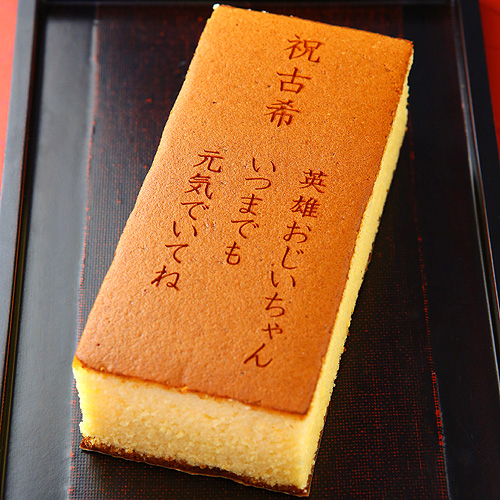 祝古希
英雄おじいちゃん
いつまでも
元気でいてね